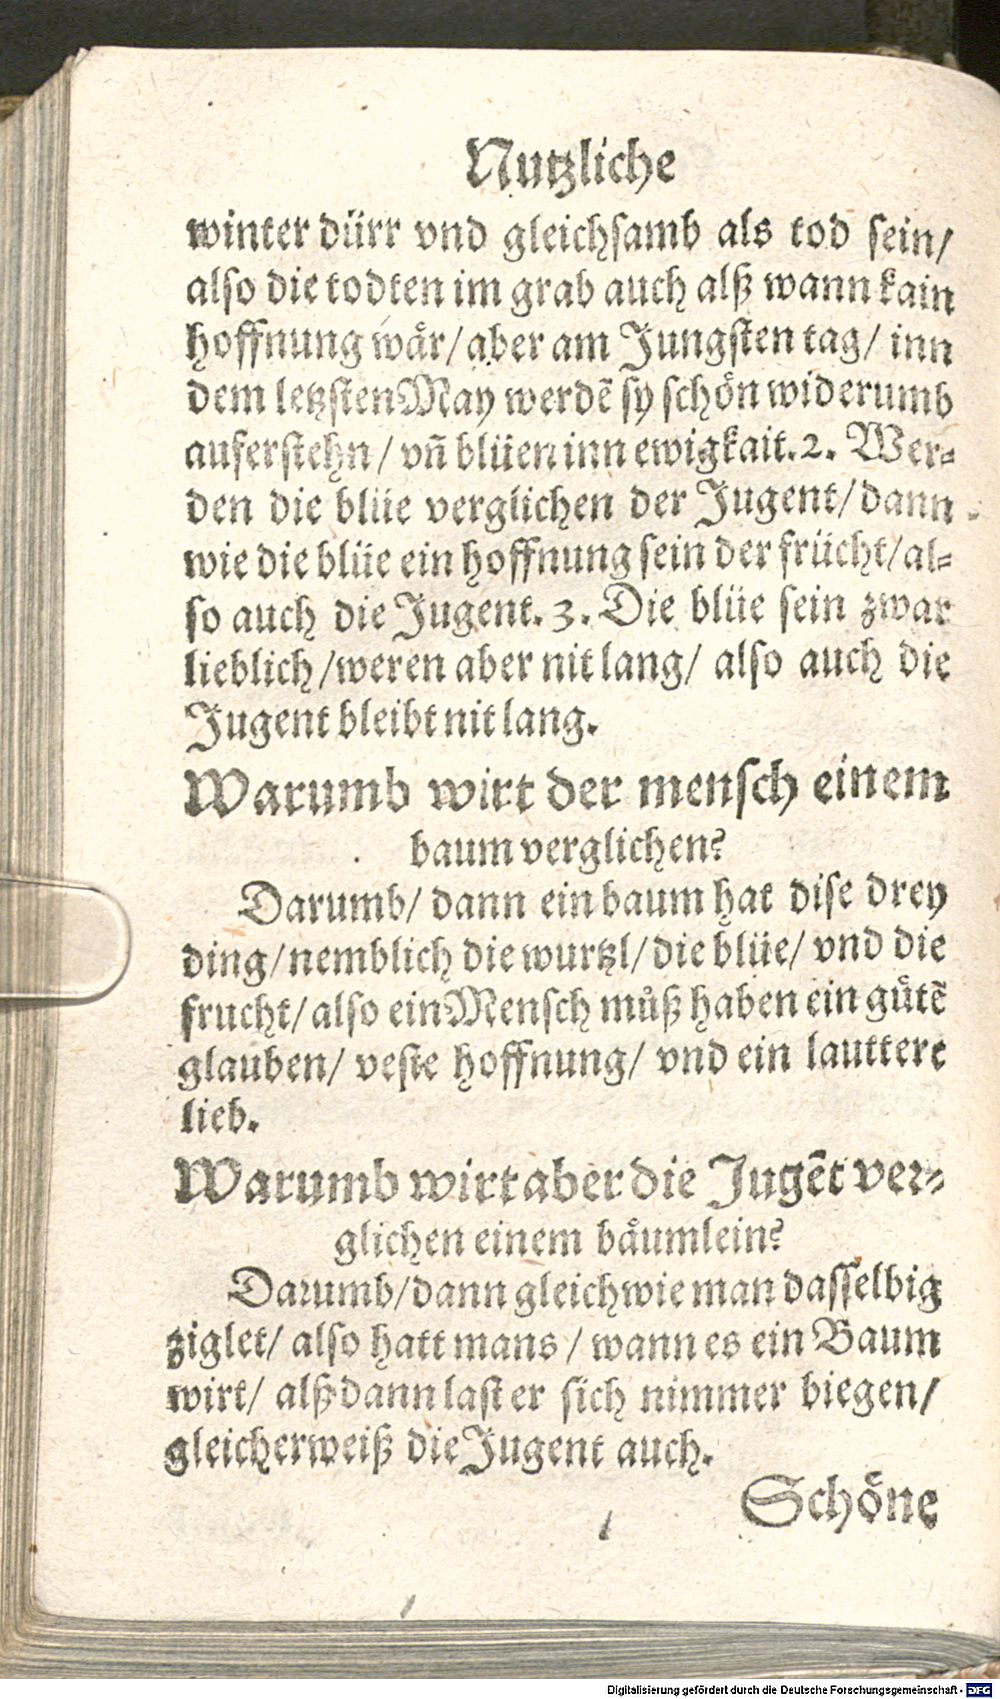 Nutzliche
winter dürr vnd gleichsamb als tod sein/
also die todten im grab auch alß wann kain
hoffnung wår/ aber am Jungsten tag/ inn
dem letzsten May werdē sy schön widerumb
auferstehn/ vn̄ blüen inn ewigkait. 2. Wer⸗
den die blüe verglichen der Jugent/ dann
wie die blüe ein hoffnung sein der frücht/ al⸗
so auch die Jugent. 3. Die blüe sein zwar
lieblich/ weren aber nit lang/ also auch die
Jugent bleibt nit lang.
Warumb wirt der mensch einem
baum verglichen?
Darumb/ dann ein baum hat dise drey
ding/ nemblich die wurtzl/ die blüe/ vnd die
frucht/ also ein Mensch můß haben ein gůtē
glauben/ veste hoffnung/ vnd ein lauttere
lieb.
Warumb wirt aber die Jugēt ver⸗
glichen einem båumlein?
Darumb/ dann gleichwie man dasselbig
ziglet/ also hatt mans/ wann es ein Baum
wirt/ alß dann last er sich nimmer biegen/
gleicherweiß die Jugent auch.
Schöne
Digitalisierung gefördert durch die Deutsche Forschungsgemeinschaft - DFG